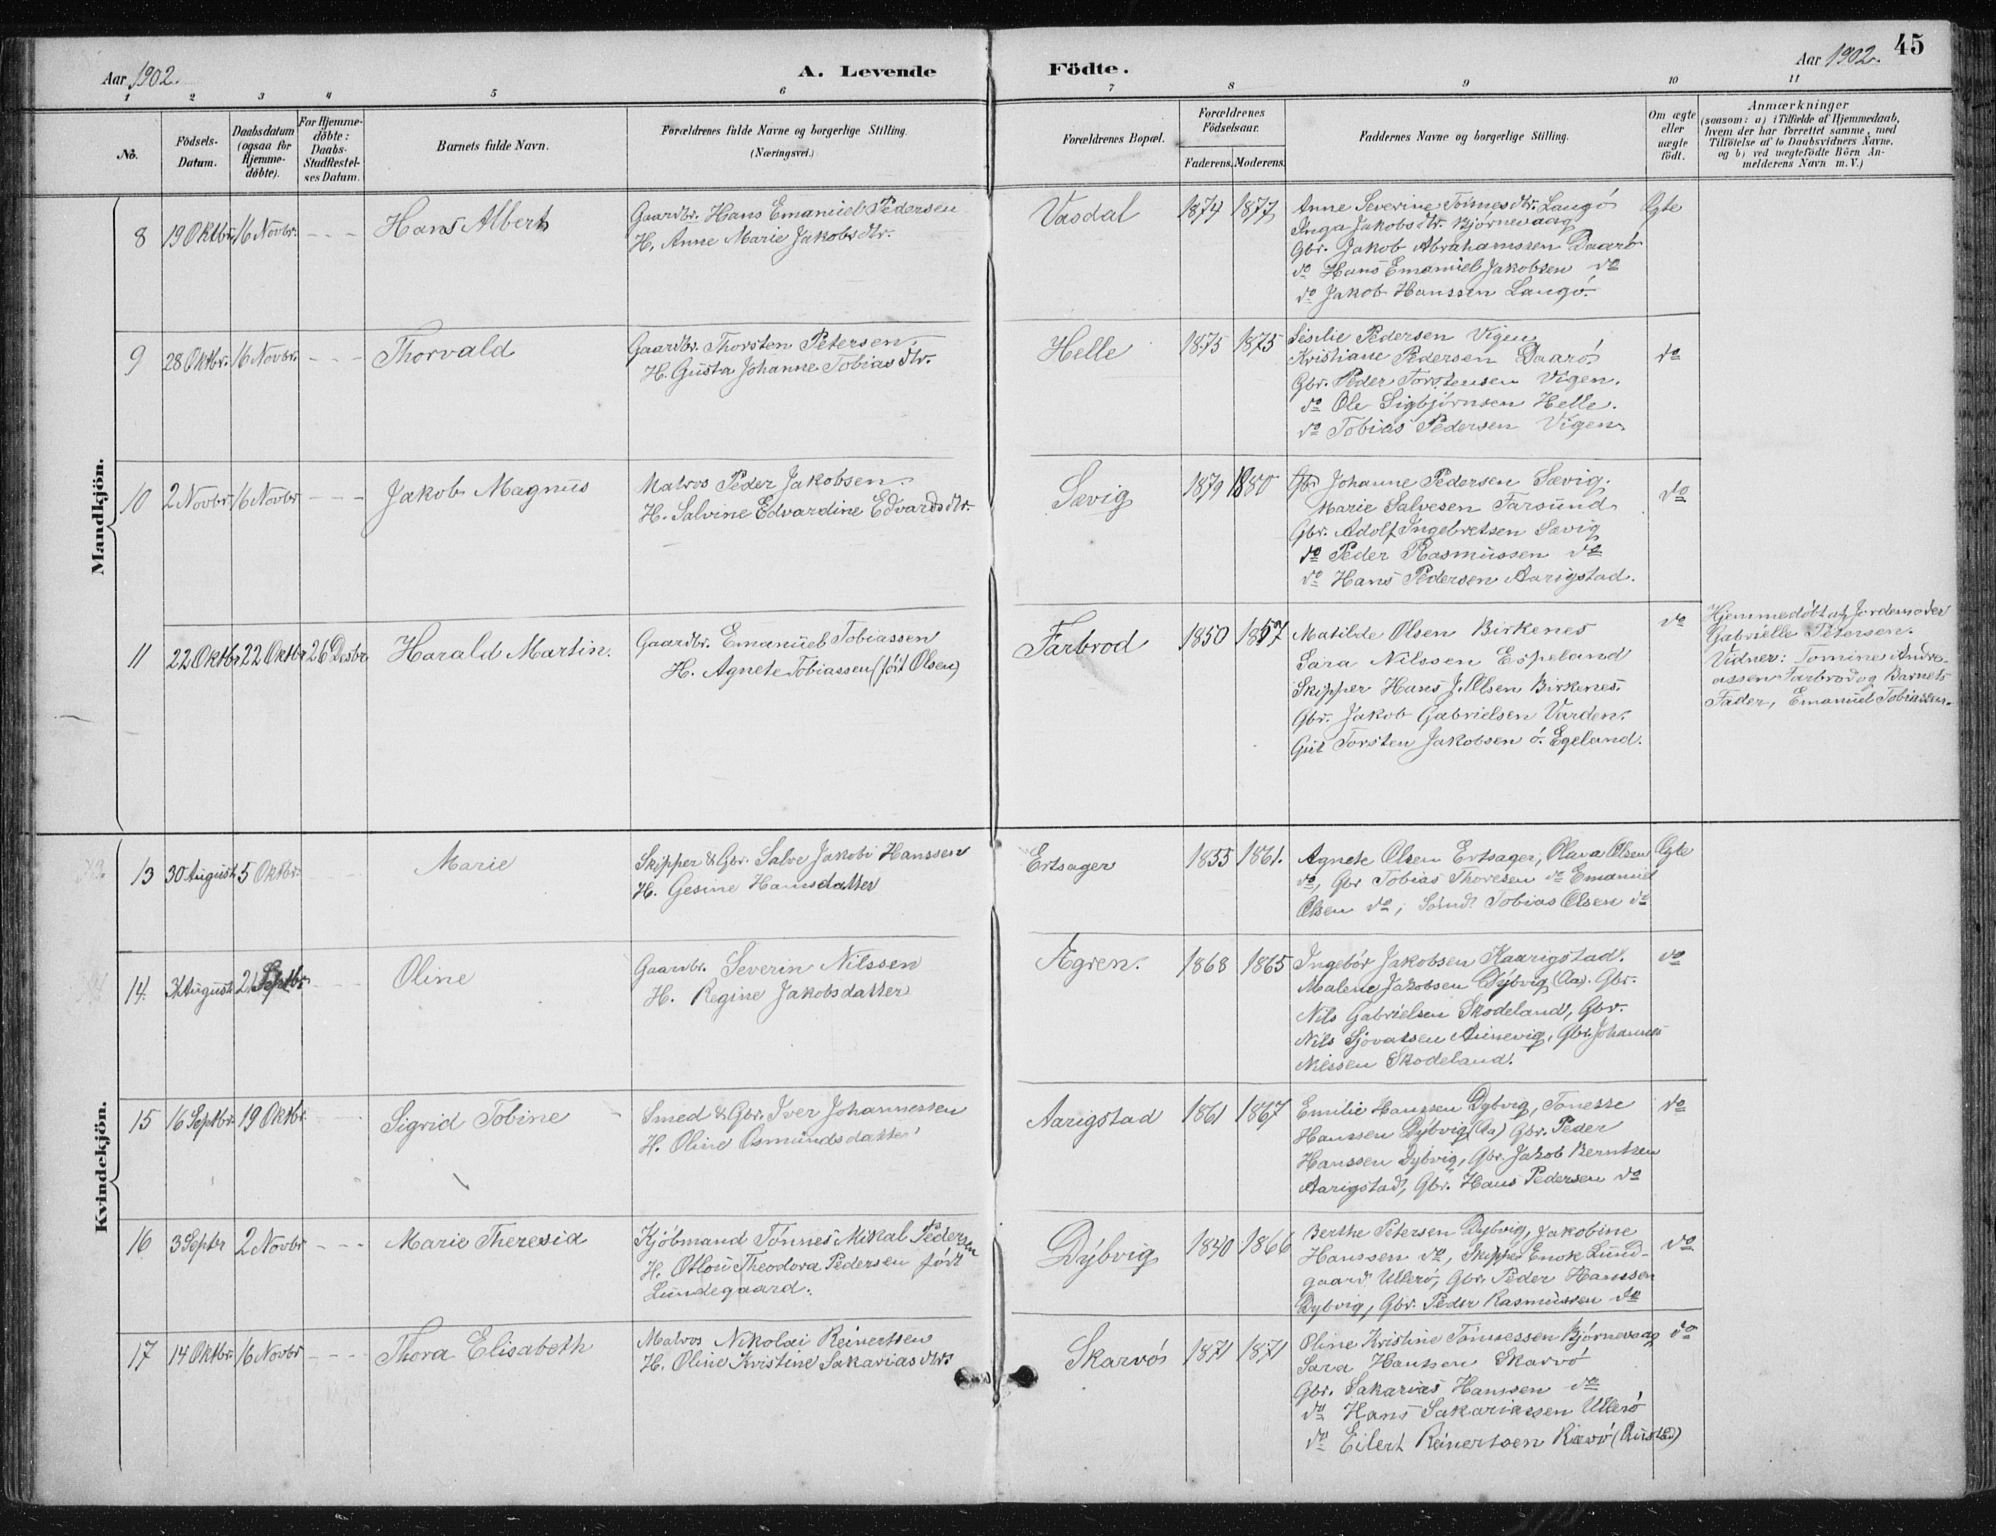 45
Aar 1902.
A. Levende
Födte.
Aar 1902.
1 2 3 4 5 6 7 8 9 10 11
No.
Födsels-
Datum.
Daabsdatum
(ogsaa for
Hjemme-
döbte).
For Hjemme-
döbte:
Daabs-
Stadfæstel-
ses Datum.
Barnets fulde Navn.
Forældrenes fulde Navne og borgerlige Stilling.
(Næringsvei.)
Forældrenes Bopæl.
Forældrenes
Födselsaar.
Faderens. Moderens.
Faddernes Navne og borgerlige Stilling.
Om ægte
eller
uægte
födt.
Anmærkninger
(saasom: a) i Tilfælde af Hjemmedaab,
hvem der har forrettet samme, med
Tilföielse af to Daabsvidners Navne,
og b) ved uægtefödte Börn An-
melderens Navn m. V.)
Mandkjön.
8 19 Oktbr. 16 Novbr. - - - Hans Albert
Gaardbr. Hans Emanuel Pedersen
H. Anne Marie Jakobsdtr.
Vasdal 1874 1877
Anne Severine Tönnesdtr. Langö
Inga Jakobsdtr. Bjørnevaag
Gbr. Jakob Abrahamssen Daarö
do Hans Emanuel Jakobsen do
do Jakob Hanssen Langö.
Ægte
9 28 Oktbr. 16 Novbr. - - - Thorvald
Gaardbr. Thorsten Petersen.
H. Gusta Johanne Tobiasdtr.
Helle 1875 1875
Sesilie Pedersen Vigen
Kristiane Pedersen Daarö
Gbr. Peder Torstensen Vigen.
do Ole Sigbjörnsen Helle.
do Tobias Pedersen Vigen.
do
10 2 Novbr. 16 Novbr - - - Jakob Magnus
Matros Peder Jakobsen.
H. Salvine Edvardine Edvardsdtr.
Sævig 1879 1880
Johanne Pedersen Sævig.
Marie Salvesen Farsund.
Gbr. Adolf Ingebretsen Sævig
do Peder Rasmussen do
do Hans Pedersen Aarigstad.
do
11 22 Oktbr 22 Oktbr 26 Desbr. Harald Martin.
Gaardbr. Emanuel Tobiassen
H. Agnete Tobiassen (föt Olsen)
Farbrod 1850 1857
Matilde Olsen Birkenes
Sara Nilssen Espeland
Skipper Hans J. Olsen Birkenes.
Gbr. Jakob Gabrielsen Varden.
Gut Torsten Jakobsen ö. Egeland.
do
Hjemmedöbt af Jordemoder
Gabrielle Petersen.
Vidner: Tomine Andre-
assen Farbrod og Barnets
Fader, Emanuel Tobiassen.
Kvindekjön.
13 30 August 5 Oktbr. Marie
Skipper & Gbr. Salve Jakobi Hanssen
H. Gesine Hansdatter
Ertsager 1855 1861.
Agnete Olsen Ertsager, Olava Olsen
do, Gbr Tobias Thoresen do Emanuel
Olsen do, Tobias Olsen do
Ægte
14. 31 August 21 Septbr. Oline
Gaardbr. Severin Nilssen
H. Regine Jakobsdatter
Ægren. 1868 1865
Ingebör Jakobsen Kaarigstad.
Malene Jakobsen Dybvig (Aa). Gbr.
Nils Gabrielsen Skodeland, Gbr.
Nils Sjovatsen Aunevig, Gbr. Johannes
Nilssen Skodeland.
do
15 16 Septbr. 19 Oktbr. Sigrid Tobine
Smed & Gbr. Iver Johannessen
H. Oline Osmundsdatter
Aarigstad 1861 1867
Emilie Hanssen Dybvig, Tonesse
Hanssen Dybvig (Aa) Gbr. Peder
Hanssen Dybvig, Gbr. Jakob Berntsen
Aarigstad, Gbr. Hans Pedersen do
do
16 3 Septbr 2 Novbr - - - Marie Theresia
Kjöbmand Tönnes Mikal Pedersen
H. Otlou Theodora Pedersen födt
Lundegaard.
Dybvig 1840 1866
Berthe Petersen Dybvig, Jakobine
Hanssen do, Skipper Enok Lund-
gaard Ullerö, Gbr. Peder Hanssen
Dybvig, Gbr. Peder Rasmussen do
do
17 14 Oktbr. 16 Novbr - - - Thora Elisabeth
Matros Nikolai Reinertsen
H. Oline Kristine Sakariasdtr.
Skarvö 1871 1871
Oline Kristine Tönnessen Bjørnevaag
Sara Hanssen Skarvö
Gbr. Sakarias Hanssen do
do Hans Sakariassen Ullerö
do Eilert Reinertsen Rævö (Austad)
do